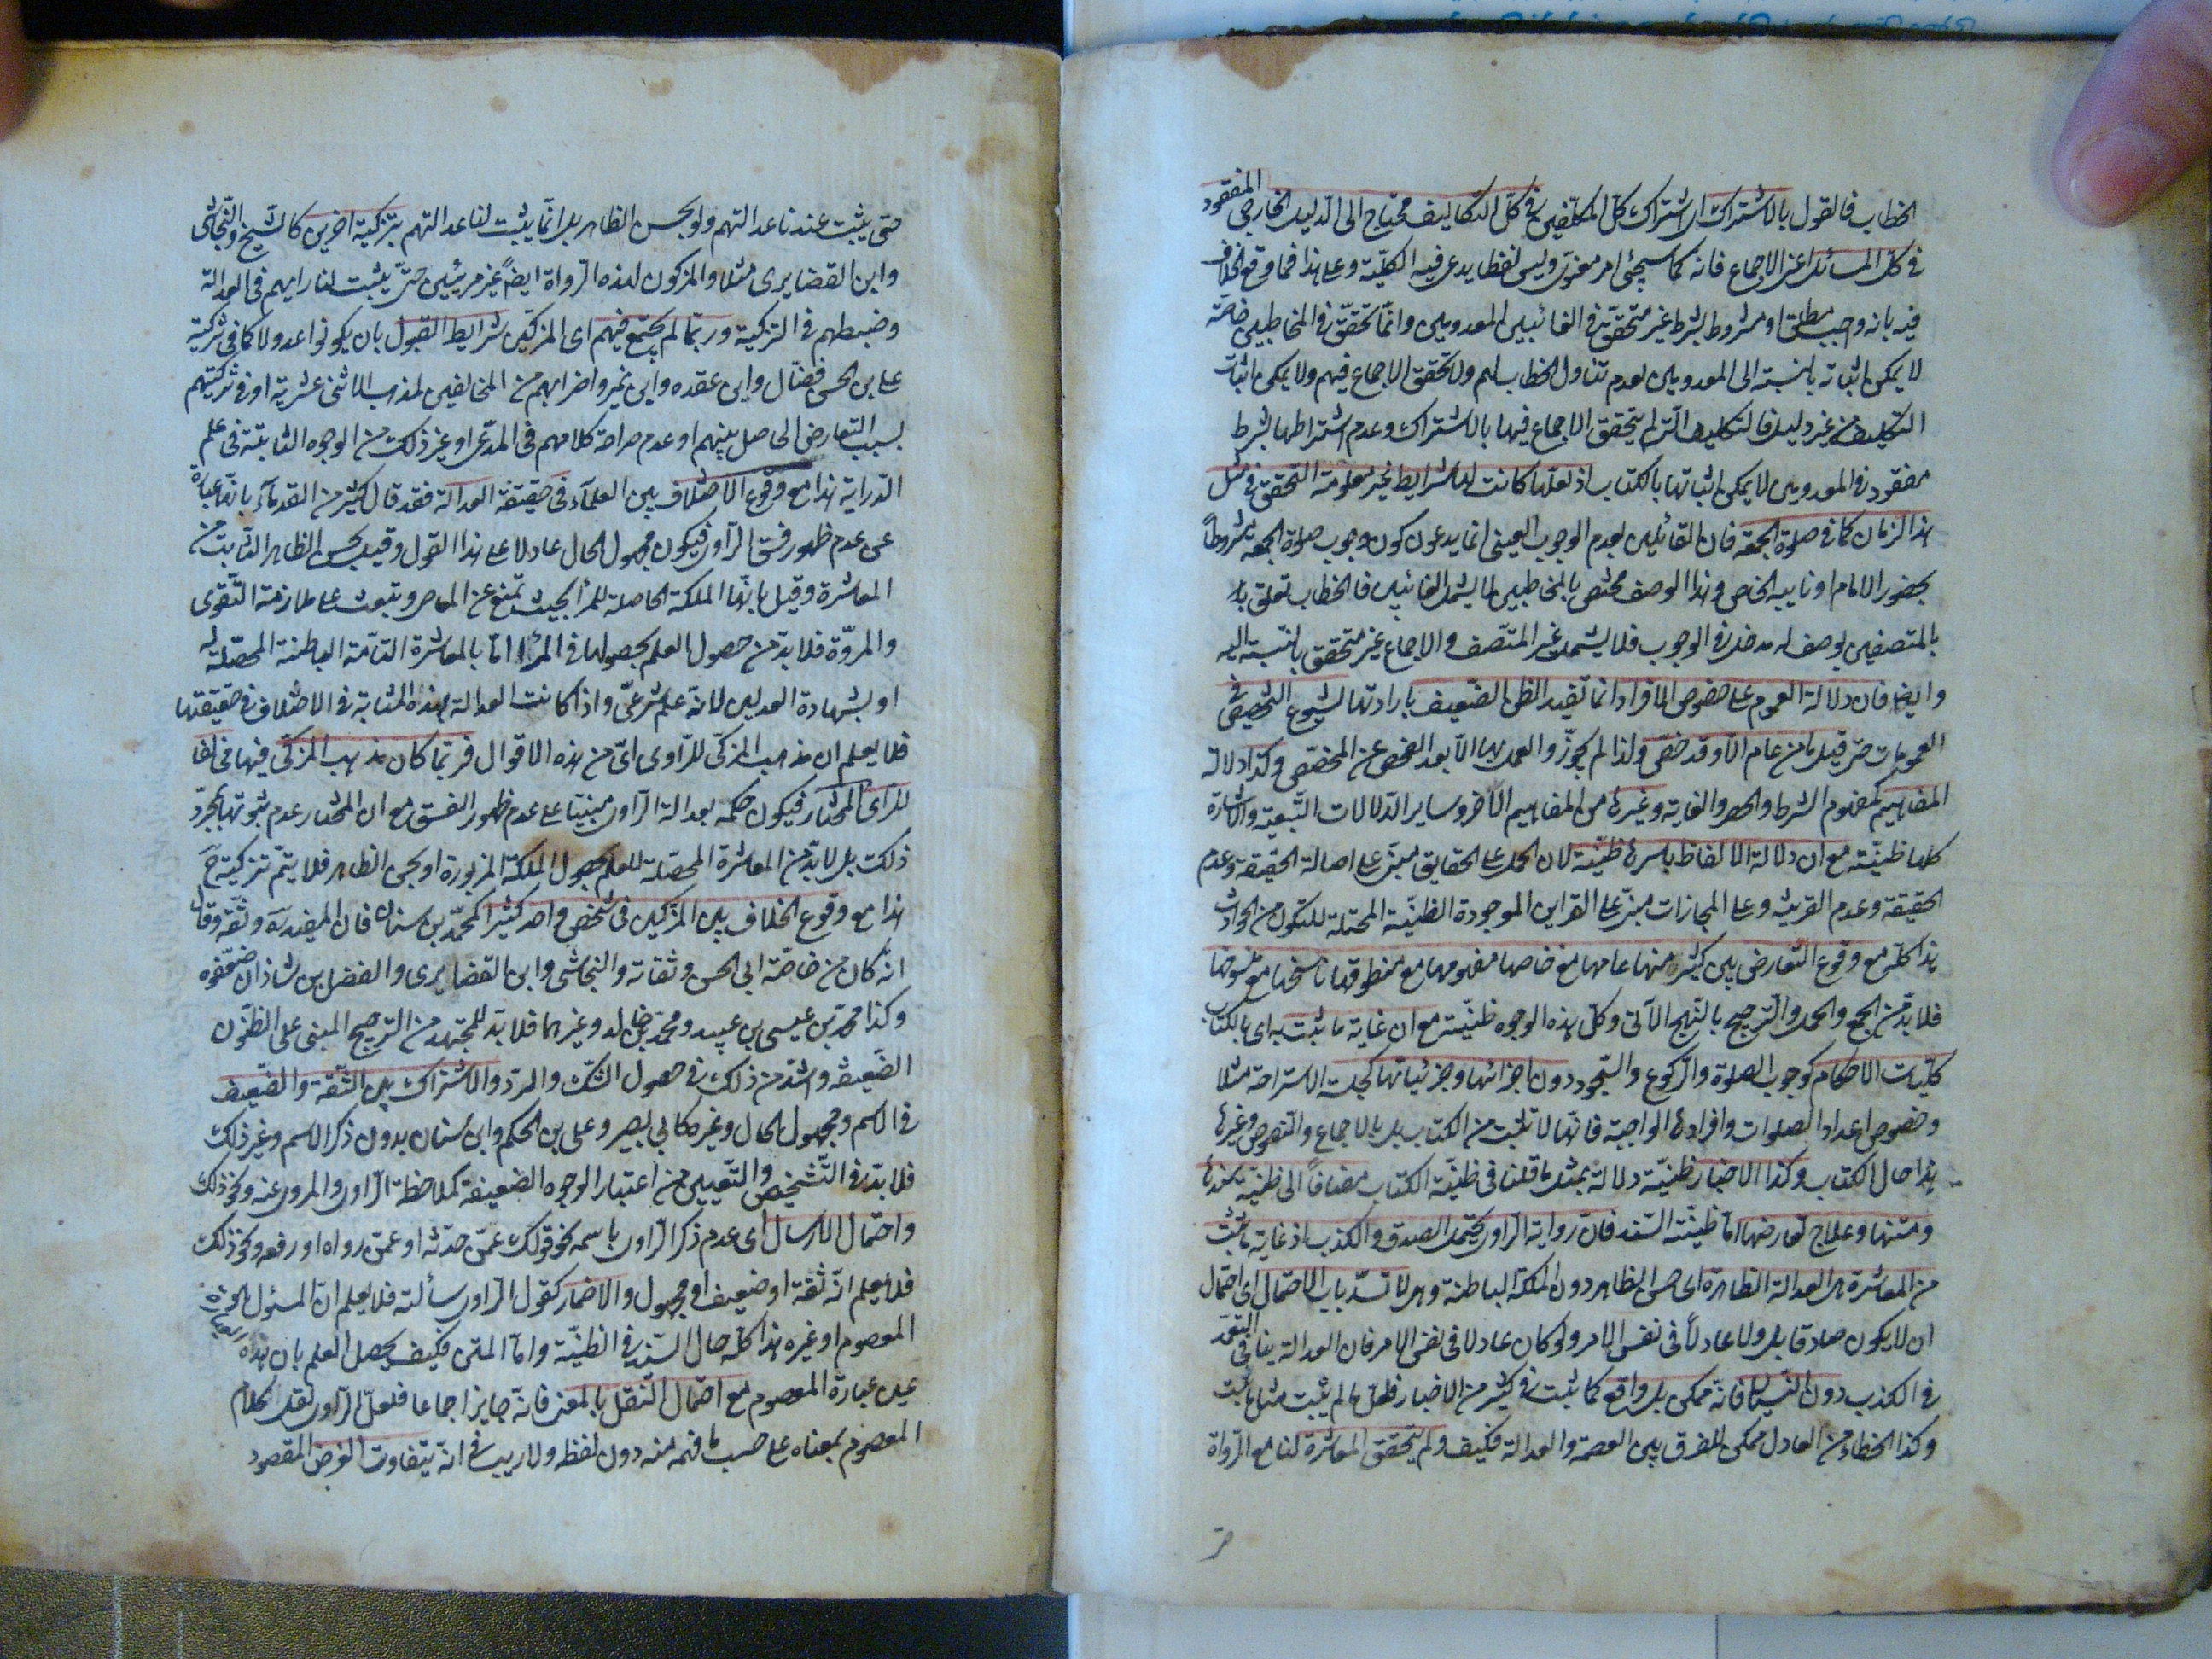 الخطاب فالقول بالاشتراك اى اشتراك كل المكلفين فى كل التكاليف محتاج الى الدليل الخارجى المفقود
فى كل المسائل اعنى الاجماع فانه كما سيجئى امر معنوى وليس لفظا يدعى فيه الكلية وعلى هذا فما وقع الخلاف
فيه بانه واجب مطلق او مشروط بشرط غير متحقق فى الغائبين المعدومين وانما تحقق فى المخاطبين خاصة
لا يمكن اثباته بالنسبة الى المعدومين لعدم تناول الخطاب لهم ولا تحقق الاجماع فيهم ولا يمكن اثبات
التكليف من غير دليل فالتكليف التى لم يتحقق الاجماع فيها بالاشتراك وعدم اشتراطها بشرط
مفقود فى المعدومين لا يمكن اثباتها بالكتاب اذ لعلها كانت لها شرايط غير معلومة التحقق فى مثل
هذا الزمان كما فى صلوة الجمعة فان القائلين بعدم الوجوب العينى انما يدعون كون وجوب صلوة الجمعة مشروطا
بحضور الامام او نايبه الخاص وهذا الوصف مختص بالمخاطبين لا يشمل الغائبين فالخطاب تعلق
بالمتصفين بوصف له مدخل فى الوجوب فلا يشمل غير المتصف والاجماع غير متحقق بالنسبة اليه
وايضا فان دلالة العموم على خصوص الافراد انما تفيد الظن الضعيف بارادتها لشيوع التخصيص فى
العمومات حتى قيل ما من عام الا وقد خص ولذا لم يجوزوا العمل بها الا بعد الفحص عن المخصص وكذا دلالة
المفاهيم كمفهوم الشرط والحصر والغاية وغيرها من المفاهيم الاخر وساير الدلالات التبعية والاشارة
كلها ظنية مع ان دلالة الالفاظ باسرها ظنية لان الحمل على الحقايق مبنى على اصالة الحقيقة وعدم
الحقيقة وعدم القرينة وعلى المجازات مبنى على القراين الموجودة الظنية المحتملة للتكون من الحوادث
هذا كله مع وقوع التعارض بين كثير منها عامها مع خاصها مفهومها مع منطوقها ناسخها مع منسوخها
فلا بد من الجمع والحمل والترجيح بالنهج الآتى وكل هذه الوجوه ظنية مع ان غاية ما يثبت به اى بالكتاب
كليات الاحكام كوجوب الصلوة والركوع والسجود دون اجزائها وجزئياتها كجلسة الاستراحة مثلا
وخصوص اعداد الصلوات وافرادها الواجبة فانها لا تثبت من الكتاب بل بالاجماع والنصوص وغيرها
هذا حال الكتاب وكذا الاخبار ظنية دلالة بمثل ما قلنا فى ظنية الكتاب مضافا الى ظنية سندها
ومتنها وعلاج تعارضها اما ظنية السند فان رواية الراوى يحتمل الصدق والكذب اذ غاية ما يثبت
من المعاشرة هى العدالة الظاهرة اى حسن الظاهر دون الملكة الباطنة وهى لا تسد باب الاحتمال اى احتمال
ان لا يكون صادقا بل ولا عادلا فى نفس الامر ولو كان عادلا فى نفس الامر فان العدالة ينافى التعمد
فى الكذب دون النسيان فانه ممكن بل واقع كما يثبت فى كثير من الاخبار فلعل ما لم يثبت مثل ما يثبت
وكذا الخطاء من العادل ممكن للفرق بين العصمة والعدالة فكيف ولم يتحقق المعاشرة لنا مع الرواة
حتى يثبت عندنا عدالتهم ولو بحسن الظاهر بل انما يثبت لنا عدالتهم بتزكية اخرين كالشيخ والنجاشى
وابن الغضايرى مثلا والمزكون لهذه الرواة ايضا غير مرئيين حتى يثبت لنا رايهم فى العدالة
وضبطهم فى التزكية وربما لم يجتمع فيهم اى المزكين شرايط القبول بان يكونوا عدولا كما فى تزكية
على بن الحسن فضال وابن عقده وابن نمير واضرابهم من المخالفين لمذهب الاثنى عشرية او فى تزكيتهم
بسبب التعارض الحاصل بينهم او عدم صراحة كلامهم فى المدعى او غير ذلك من الوجوه الثابتة فى علم
الدراية هذا مع وقوع الاختلاف بين العلماء فى حقيقة العدالة فقد قال كثير من القدماء بانها عبارة
عن عدم ظهور فسق الراوى فيكون مجهول الحال عادلا على هذا القول وقيل بحسن الظاهر الثابت من
المعاشرة وقيل بانها الملكة الحاصلة للمرأ بحيث تمنع عن المعاصى وتبعث على ملازمة التقوى
والمروة فلا بد من حصول العلم بحصولها فى المرأ اما بالمعاشرة التامة الباطنة المحصلة له
او بشهادة العدلين لانه علم شرعى واذا كانت العدالة بهذه المثابة فى الاختلاف فى حقيقتها
فلا يعلم ان مذهب المزكى للراوى اى من هذه الاقوال فربما كان مذهب المزكى فيها مخالفا
للراى المختار فيكون حكمه بعدالة الراوى مبنيا على عدم ظهور الفسق مع ان المختار عدم ثبوتها بمجرد
ذلك بل لا بد من المعاشرة المحصلة للعلم بحصول الملكة المزبورة او بحسن الظاهر فلا يتم تزكيته ح
هذا مع وقوع الخلاف بين المزكين فى شخص واحد كثيرا كمحمد بن سنان فان المفيد ره وثقه وقال
انه كان من خاصة ابى الحسن وثقاته والنجاشى وابن الغضايرى والفضل بن شاذان ضعفوه
وكذا محمد بن عيسى بن عبيد ومحمد بن خالد وغيرهما فلا بد للمجتهد من الترجيح المبنى على الظنون
الضعيفة واشد من ذلك فى حصول الشك والمرد والاشتراك بين الثقة والضعيف
فى الاسم ومجهول الحال وغيره كابى بصير وعلى بن الحكم وابن سنان بدون ذكر الاسم وغير ذلك
فلا بد فى التشخيص والتعيين من اعتبار الوجوه الضعيفة كملاحظة الراوى والمروى عنه ونحو ذلك
واحتمال الارسال اى عدم ذكر الراوى باسمه كنحو قولك عمن حدثه او عمن رواه او رفعه ونحو ذلك
فلا يعلم انه ثقة او ضعيف او مجهول والاضمار كقول الراوى سألته فلا يعلم ان المسئول
المعصوم او غيره هذا كله حال السند فى الظنية واما المتن فكيف يحصل العلم بان هذه
عين عبارة المعصوم مع احتمال النقل بالمعنى فانه جايز اجماعا فلعل الراوى نقل كلام
المعصوم بمعناه على حسب ما فهمه منه دون لفظه ولا ريب فى انه يتفاوت الغرض المقصود